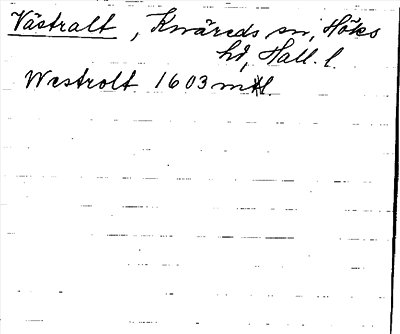 Västralt, Knäreds sn, Höks
hd, Hall. l.
Westrolt 1603 mtl.